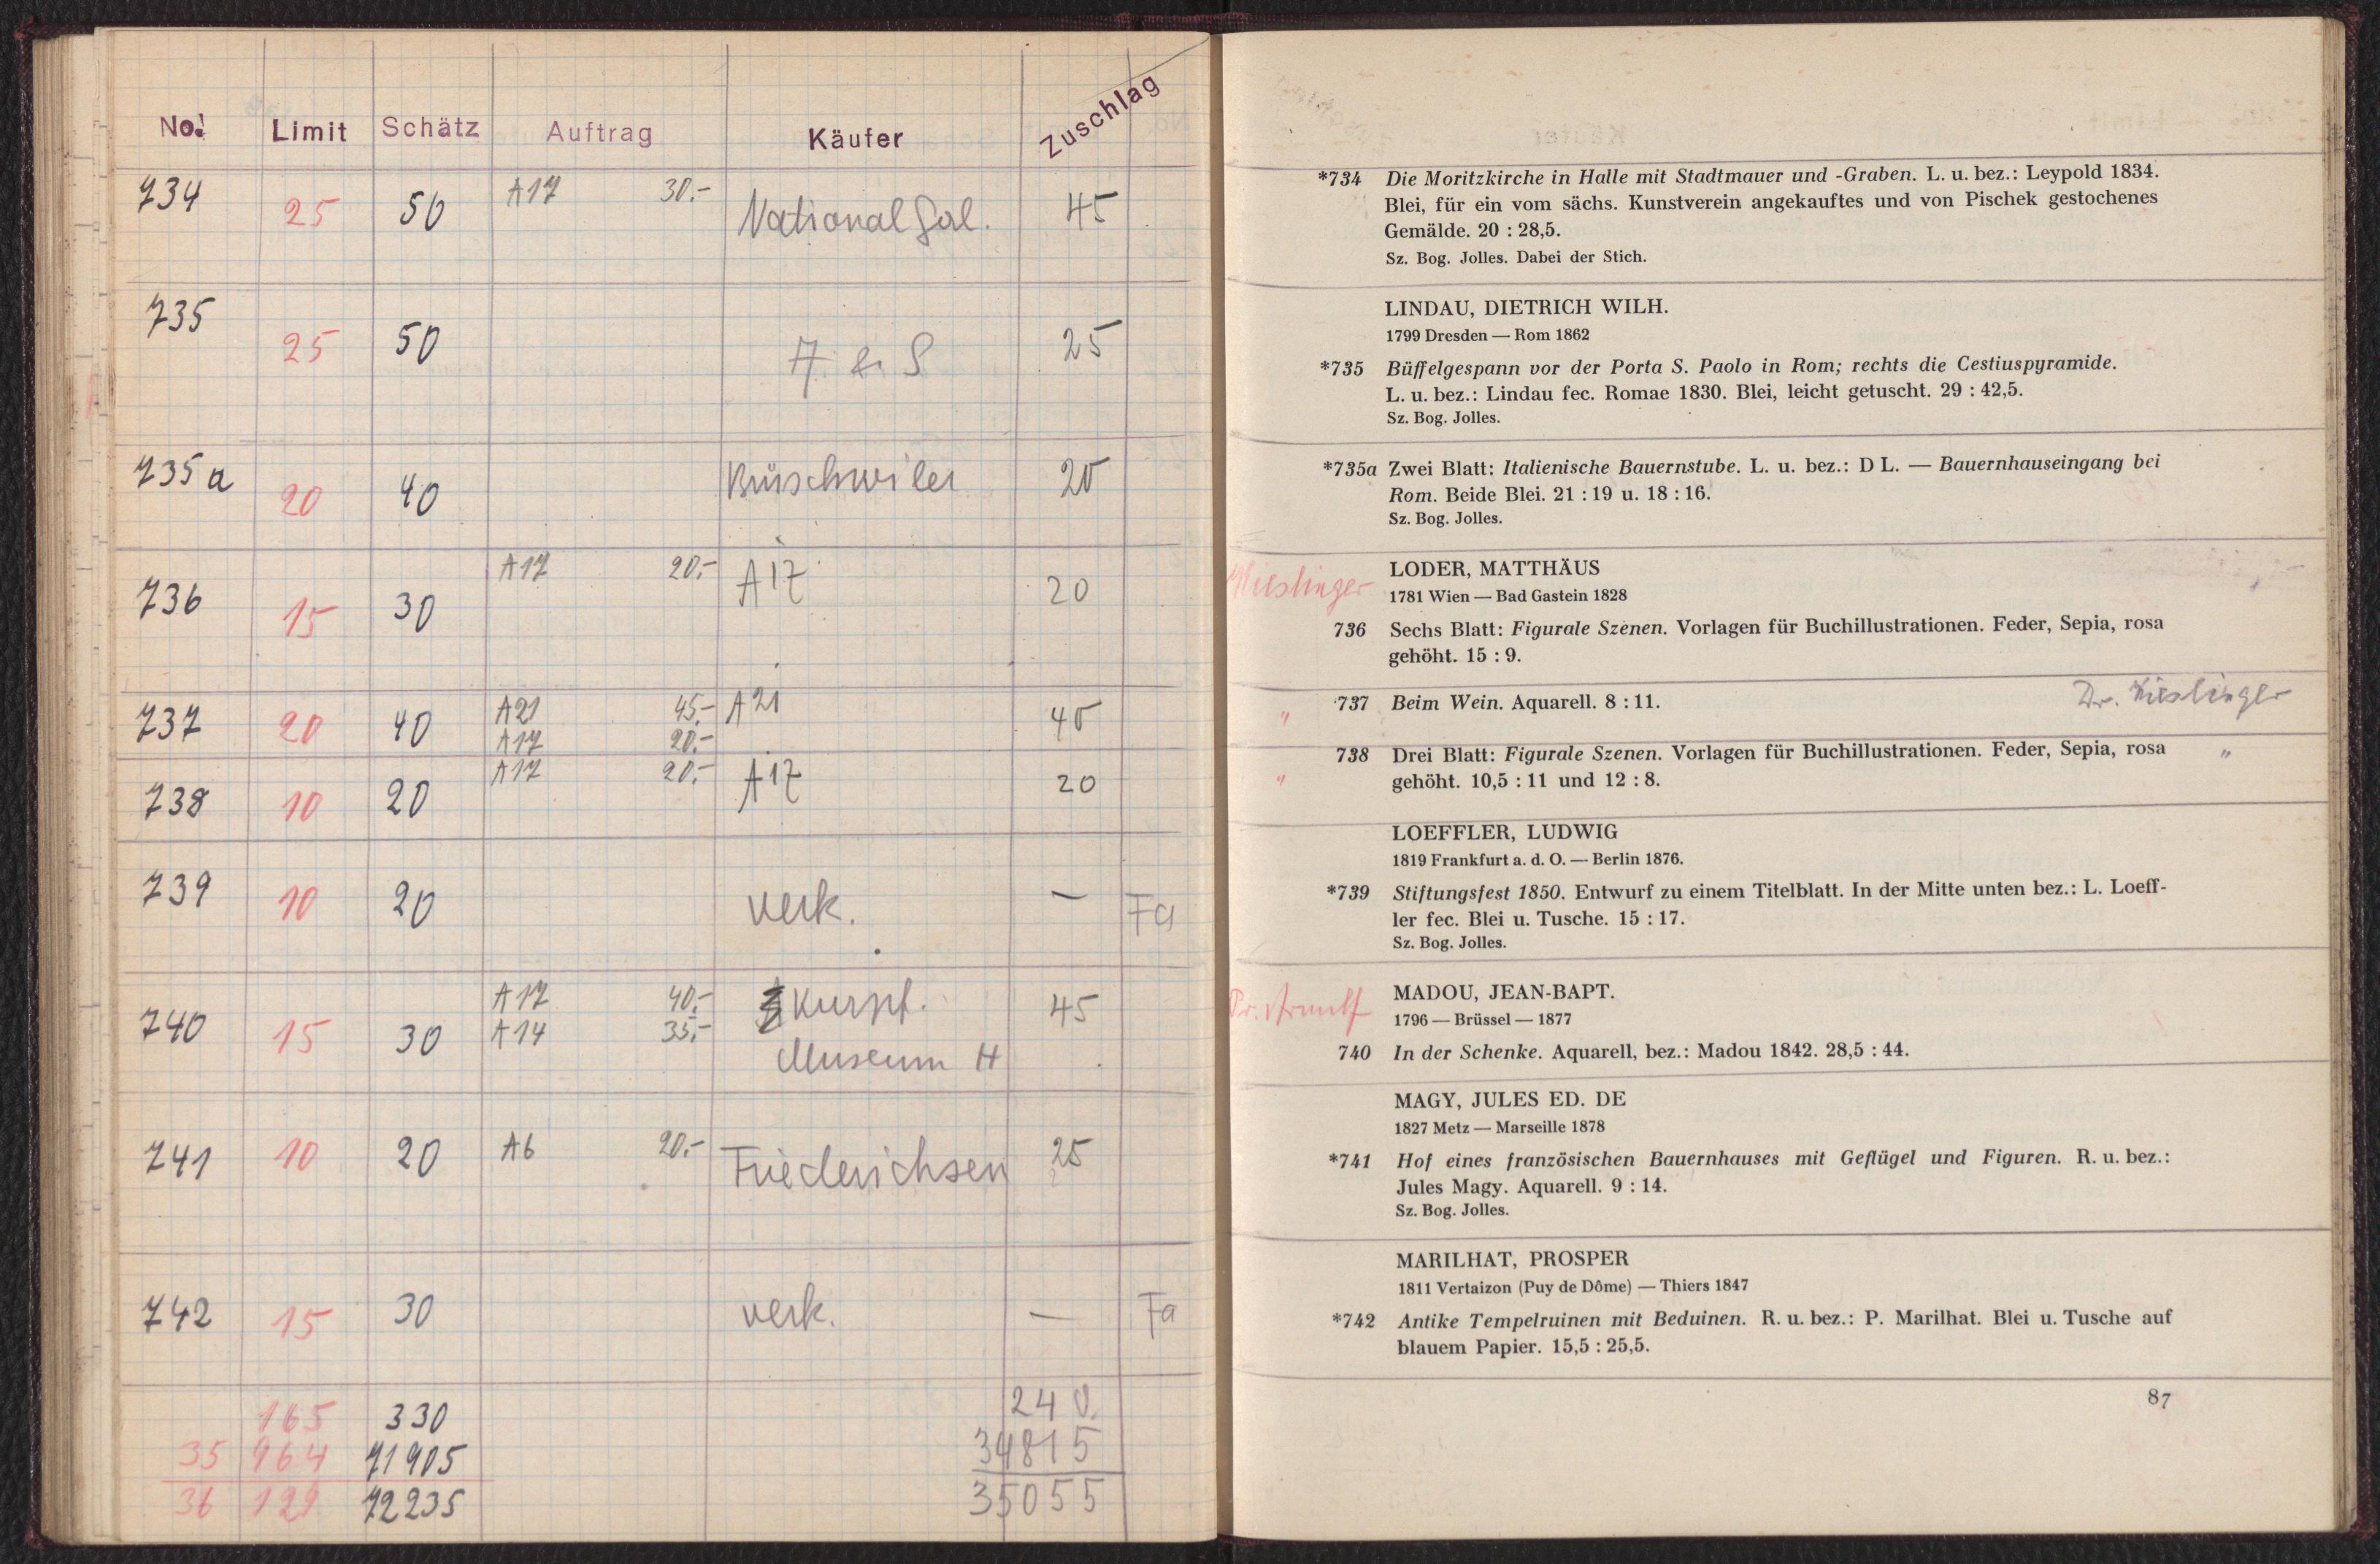 No. Limit Schätz Auftrag Käufer Zuschlag
734 25 50 A17 30.- National Gal. 45
735 25 50 25
735a 20 40 20
736 15 30 A17 20.- A17 20
737 20 40 A21 45.- A21 40
A17 20.-
738 10 20 A17 20.- A17 20
739 10 20 verk. — Fa
740 15 30 A17 40.- Kurpf. 45
A14 35.- Museum H
741 10 20 A6 20.- Friederichsen 25
742 15 30 verk. — Fa
165 330 240.
35 964 71905 34815
36 129 72235 35055
*734 Die Moritzkirche in Halle mit Stadtmauer und -Graben. L. u. bez.: Leypold 1834.
Blei, für ein vom sächs. Kunstverein angekauftes und von Pischek gestochenes
Gemälde. 20 : 28,5.
Sz. Bog. Jolles. Dabei der Stich.
LINDAU, DIETRICH WILH.
1799 Dresden — Rom 1862
*735 Büffelgespann vor der Porta S. Paolo in Rom; rechts die Cestiuspyramide.
L. u. bez.: Lindau fec. Romae 1830. Blei, leicht getuscht. 29 : 42,5.
Sz. Bog. Jolles.
*735a Zwei Blatt: Italienische Bauernstube. L. u. bez.: D L. — Bauernhauseingang bei
Rom. Beide Blei. 21 : 19 u. 18 : 16.
Sz. Bog. Jolles.
Kieslinger LODER, MATTHÄUS
1781 Wien — Bad Gastein 1828
736 Sechs Blatt: Figurale Szenen. Vorlagen für Buchillustrationen. Feder, Sepia, rosa
gehöht. 15 : 9.
" 737 Beim Wein. Aquarell. 8 : 11. Dr. Kieslinger
" 738 Drei Blatt: Figurale Szenen. Vorlagen für Buchillustrationen. Feder, Sepia, rosa "
gehöht. 10,5 : 11 und 12 : 8.
LOEFFLER, LUDWIG
1819 Frankfurt a. d. O. — Berlin 1876.
*739 Stiftungsfest 1850. Entwurf zu einem Titelblatt. In der Mitte unten bez.: L. Loeff-
ler fec. Blei u. Tusche. 15 : 17.
Sz. Bog. Jolles.
MADOU, JEAN-BAPT.
1796 — Brüssel — 1877
740 In der Schenke. Aquarell, bez.: Madou 1842. 28,5 : 44.
MAGY, JULES ED. DE
1827 Metz — Marseille 1878
*741 Hof eines französischen Bauernhauses mit Geflügel und Figuren. R. u. bez.:
Jules Magy. Aquarell. 9 : 14.
Sz. Bog. Jolles.
MARILHAT, PROSPER
1811 Vertaizon (Puy de Dôme) — Thiers 1847
*742 Antike Tempelruinen mit Beduinen. R. u. bez.: P. Marilhat. Blei u. Tusche auf
blauem Papier. 15,5 : 25,5.
87